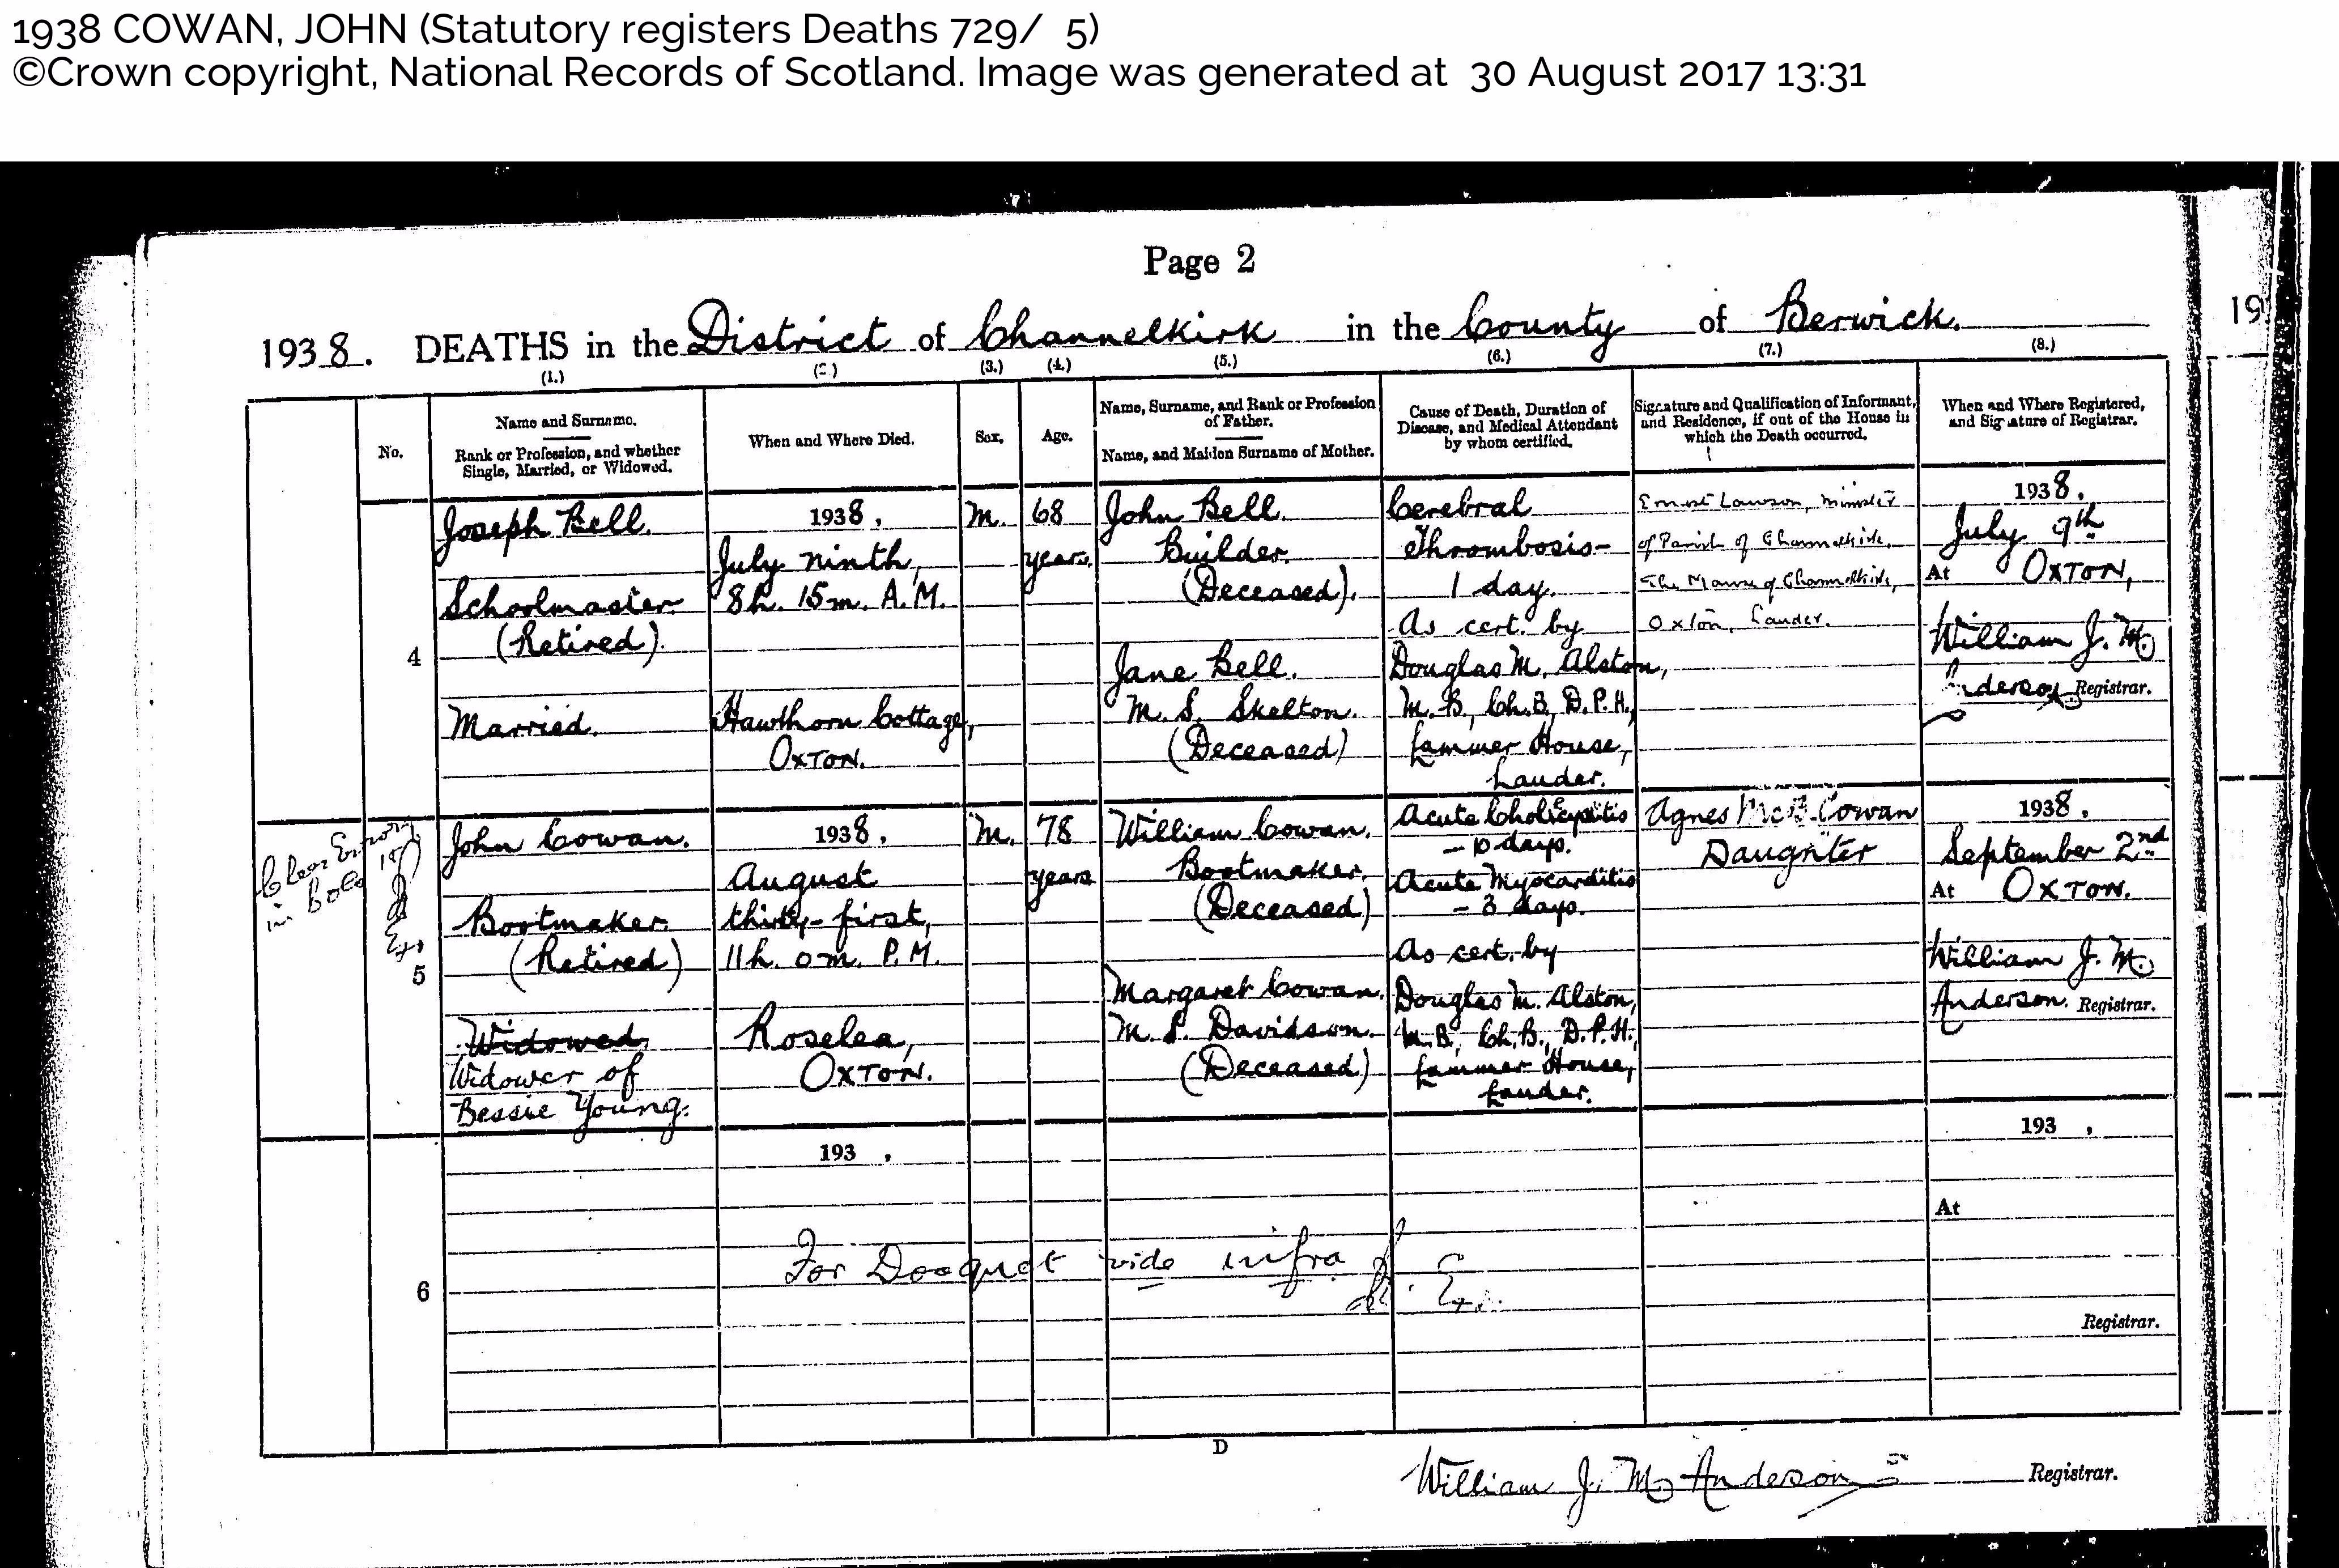 1938 COWAN, JOHN (Statutory registers Deaths 729/ 5)
©Crown copyright, National Records of Scotland. Image was generated at 30 August 2017 13:31
Page 2
1938. DEATHS in the District of Channelkirk in the County of Berwick.
(1.) (2.) (3.) (4.) (5.) (6.) (7.) (8.)
No.
Name and Surname.
Rank or Profession, and whether
Single, Married, or Widowed.
When and Where Died.
Sex.
Age.
Name, Surname, and Rank or Profession
of Father.
Name, and Maiden Surname of Mother.
Cause of Death, Duration of
Disease, and Medical Attendant
by whom certified.
Signature and Qualification of Informant,
and Residence, if out of the House in
which the Death occurred.
When and Where Registered,
and Signature of Registrar.
4
Joseph Bell.
Schoolmaster
(Retired).
Married.
1938,
July ninth,
8h. 15m. A.M.
Hawthorn Cottage,
OXTON.
M.
68
years.
John Bell.
Builder.
(Deceased).
Jane Bell.
M. S. Skelton.
(Deceased)
Cerebral
Thrombosis-
1 day.
As cert. by
Douglas M. Alston,
M.B., Ch.B., D.P.H.,
Lammer House,
Lauder.
Ernest Lawson, Minister
of Parish of Channelkirk,
The Manse of Channelkirk,
Oxton, Lauder.
1938.
July 9th
At OXTON,
William J. M.
Anderson Registrar.
Clear Error
in Colo 1
5
John Cowan.
Bootmaker
(Retired)
Widowed
Widower of
Bessie Young.
1938.
August
thirty-first,
11h. 0m. P.M.
Roselea,
OXTON.
M.
78
years
William Cowan.
Bootmaker.
(Deceased)
Margaret Cowan.
M. S. Davidson.
(Deceased)
Acute
- 10 days.
Acute Myocarditis
- 3 days.
As cert. by
Douglas M. Alston,
M.B., Ch.B., D.P.H.,
Lammer House,
Lauder.
Agnes McB. Cowan
Daughter
1938.
September 2nd
At OXTON.
William J. M.
Anderson. Registrar.
6
193 ,
For Docquet vide infra
193 ,
At
Registrar.
D
William J. M. Anderson Registrar.
19